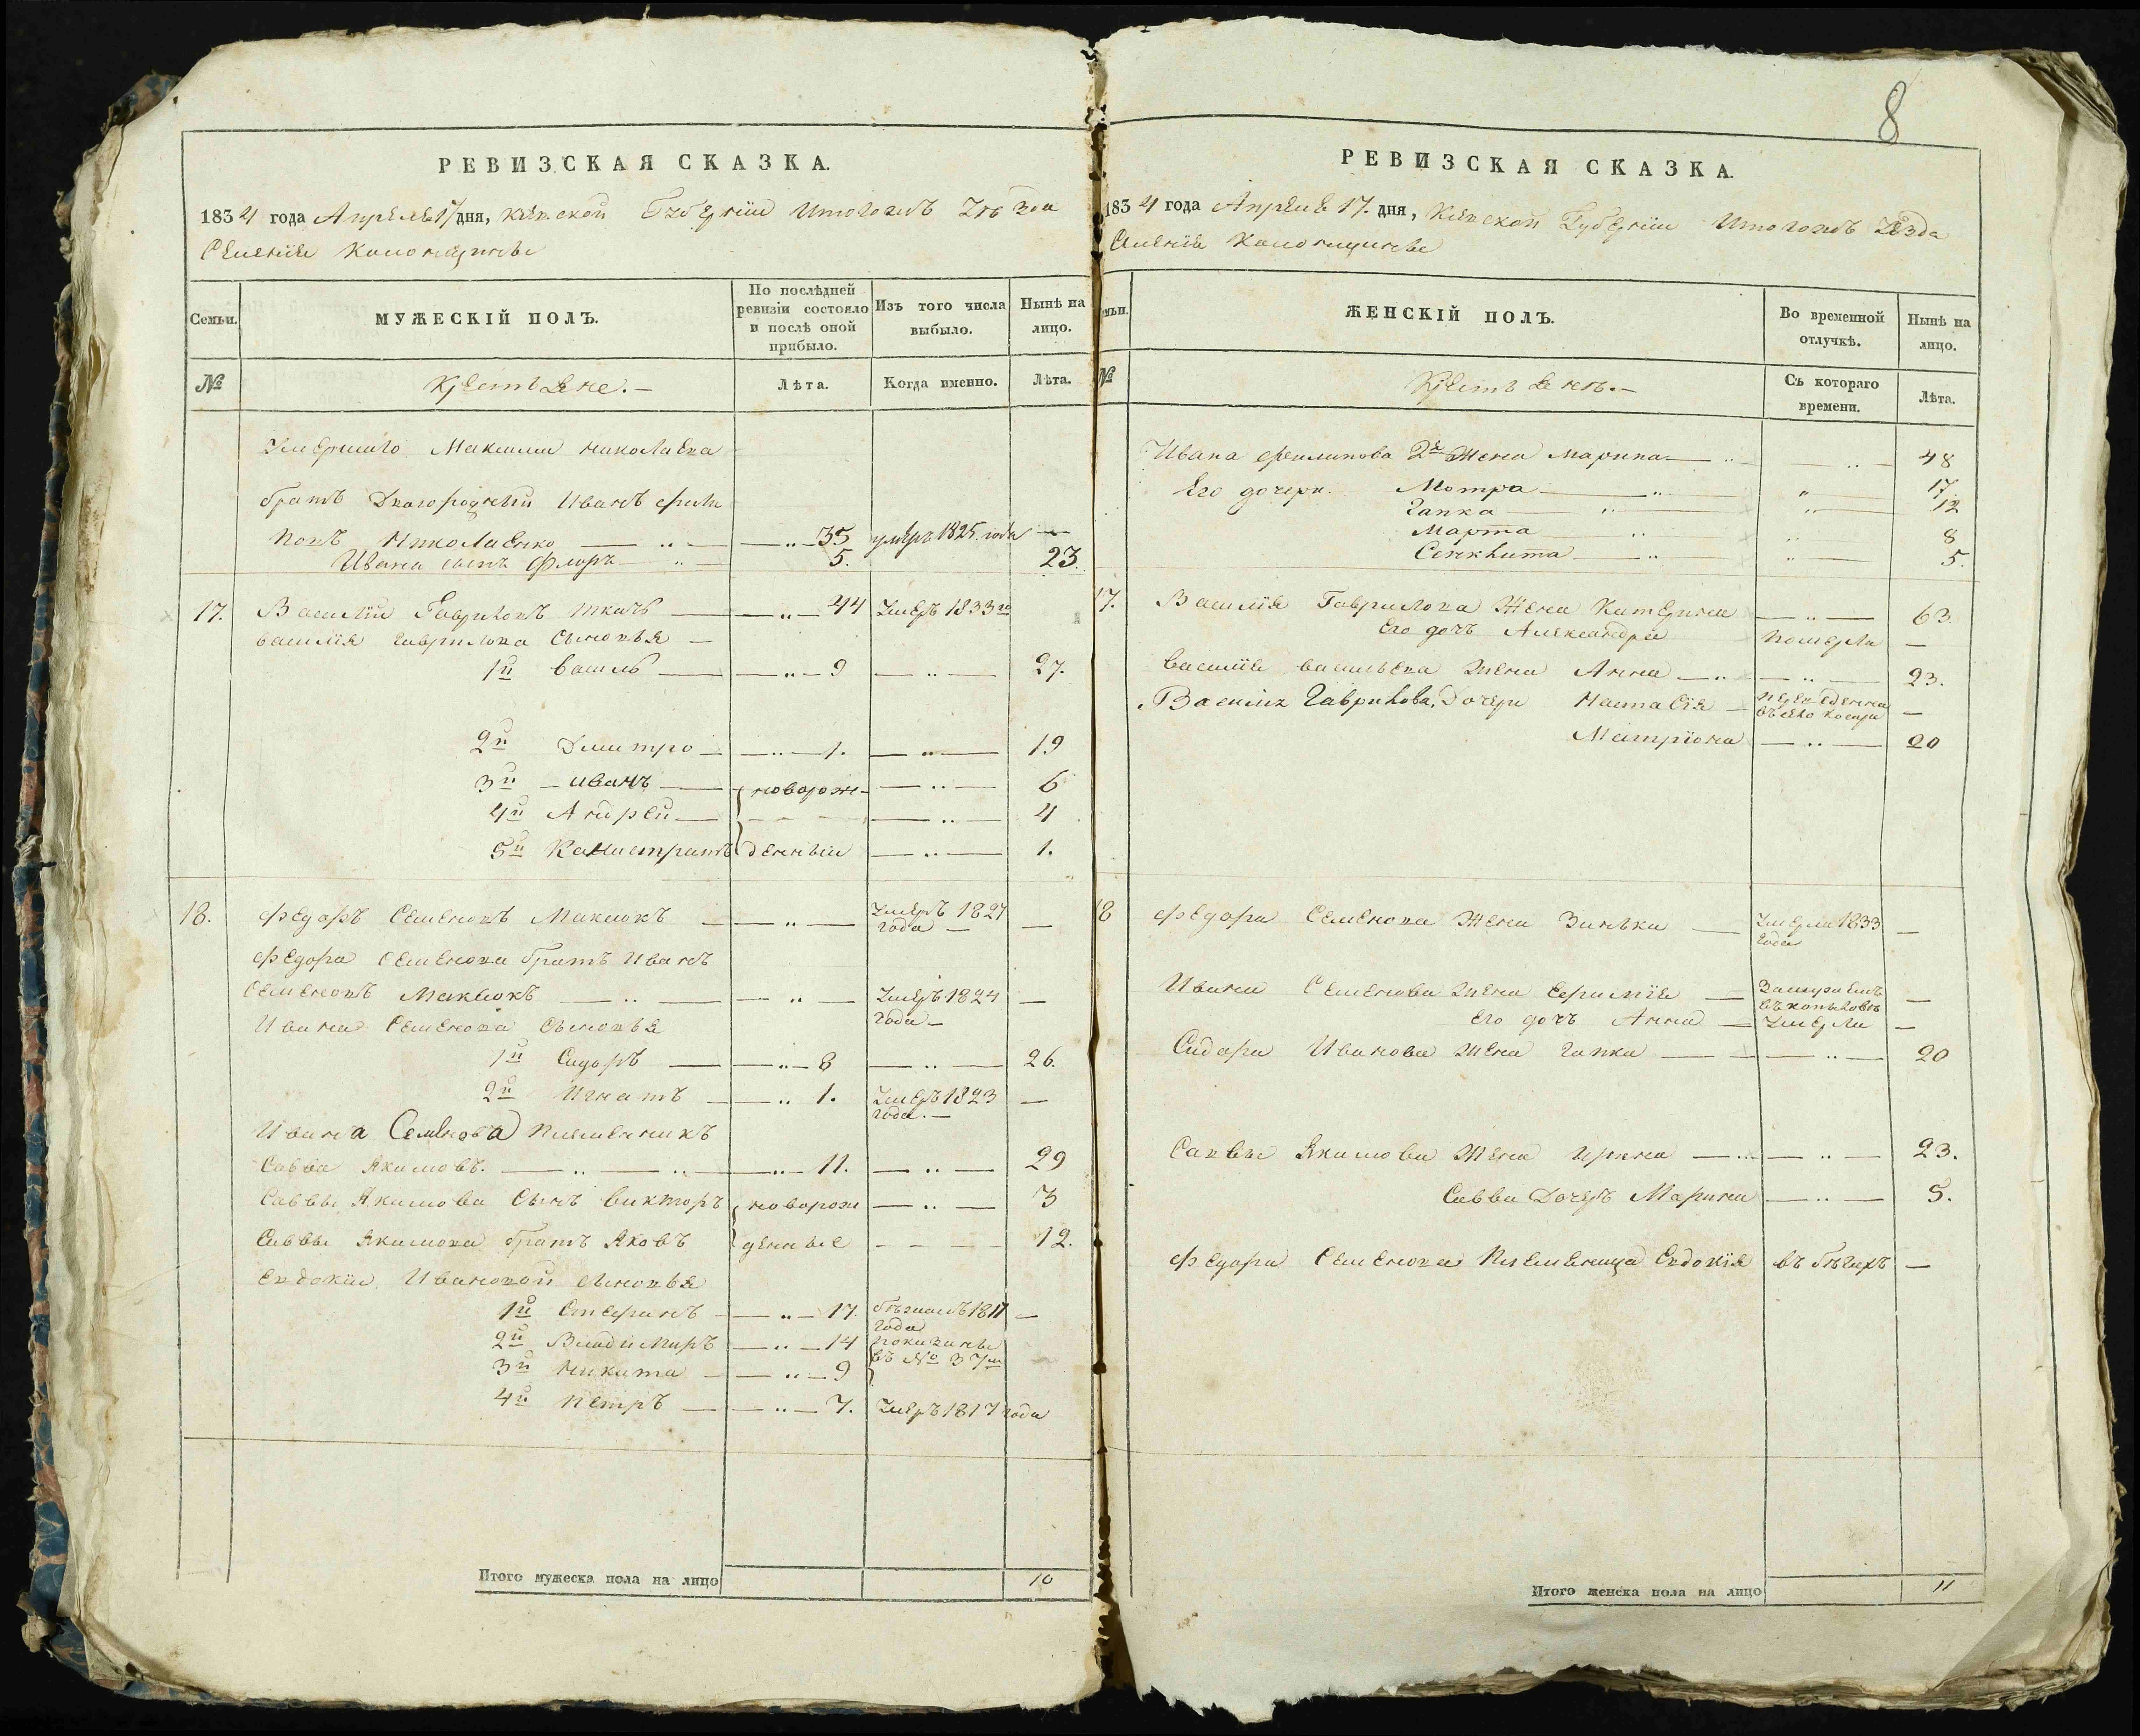 8
РЕВИЗСКАЯ СКАЗКА.
1834 года Апреля 17 дня, Кіевской Губерніи
Селенія
Семьи.
МУЖЕСКІЙ ПОЛЪ.
По послѣдней ревизіи состояло и послѣ оной прибыло.
Изъ того числа выбыло.
Нынѣ на лицо.
№
Крестьяне.—
Лѣта.
Когда именно.
Лѣта.
Умершаго Максима Николаева
братъ Двоюродный Иванъ Фили
повъ Николаенко — 35 умеръ 1825 года —
Ивана сынъ Флоръ — 5. 23.
17. Василій Гавриловъ Ткачъ — 44 Умеръ 1833го
Василія Гаврилова Сыновья —
1й Василь — 9 — 27.
2й Дмитро — 1. — 19
3й Иванъ — новорож- — 6
4й Андрей — 4
5й Калистратъ денныи — 1.
18. Федоръ Семеновъ Максюкъ — Умеръ 1827 года —
Федора Семенова братъ Иванъ
Семеновъ Максюкъ — Умеръ 1824 года —
Ивана Семенова Сыновья
1й Сидоръ — 8 — 26.
2й Игнатъ — 1. Умеръ 1823 года. —
Ивана Семенова племенникъ
Савва Якимовъ. — 11. — 29
Саввы Якимова Сынъ Викторъ новорож — 3
Саввы Якимова братъ Яковъ денные — 12.
Евдокіи Ивановой сыновья
1й Стефанъ — 17. 1811 года —
2й Владимиръ — 14 показаны
3й Никита — 9 въ № 37м
4й Петръ — 7. Умеръ 1817 года
Итого мужеска пола на лицо 10
РЕВИЗСКАЯ СКАЗКА.
1834 года Апреля 17. дня, Кіевской Губерніи Уѣзда
Селенія
Семьи.
ЖЕНСКІЙ ПОЛЪ.
Во временной отлучкѣ.
Нынѣ на лицо.
№
Съ котораго времени.
Лѣта.
Ивана Филипова 2я Жена Марина — 48
Его дочери. Мотра — 17.
Гапка — 12
Марта 8
5.
17. Василія Гаврилова Жена Катерина — 63.
Его дочь Александра померла —
Василія Васильева жена Анна — 23.
Василія Гаврилова, Дочери Настасія —
Матріона — 20
18 Федора Семенова Жена Зинька — Умерла 1833 года —
Ивана Семенова жена —
Его дочь Анна — Умерла —
Сидора Иванова жена Гапка — 20
Саввы Якимова Жена Ирина — 23.
Савва Дочерь Марина — 5.
Федора Семенова Племеница Евдокія въ бѣгахъ —
Итого женска пола на лицо 11